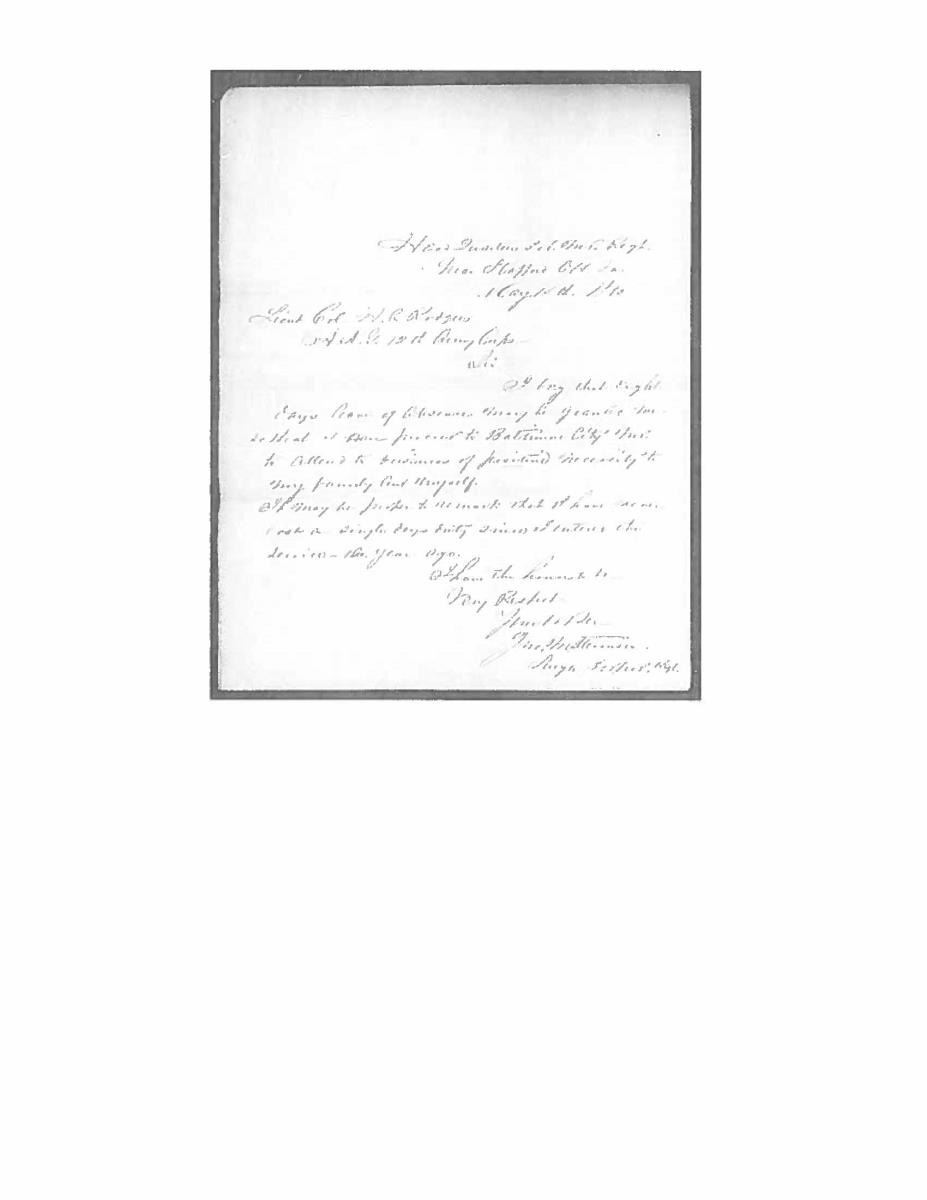 Head Quarters Md. Regt.
Near Stafford C.H. Va.
May 12th
Lieut Col H. C. Rodgers
A. A. G. 12th Army Corps
Sir
I beg that Eight
days leave of Absence may be granted me
so that I can proceed to Baltimore City Md.
to Attend to business of necessity to
my family and myself.
It may be proper to remark that I have never
lost a single days duty since I entered the
Service year ago.
I have the honor to be
Very Respect
Your Ob
Surgn Regt.